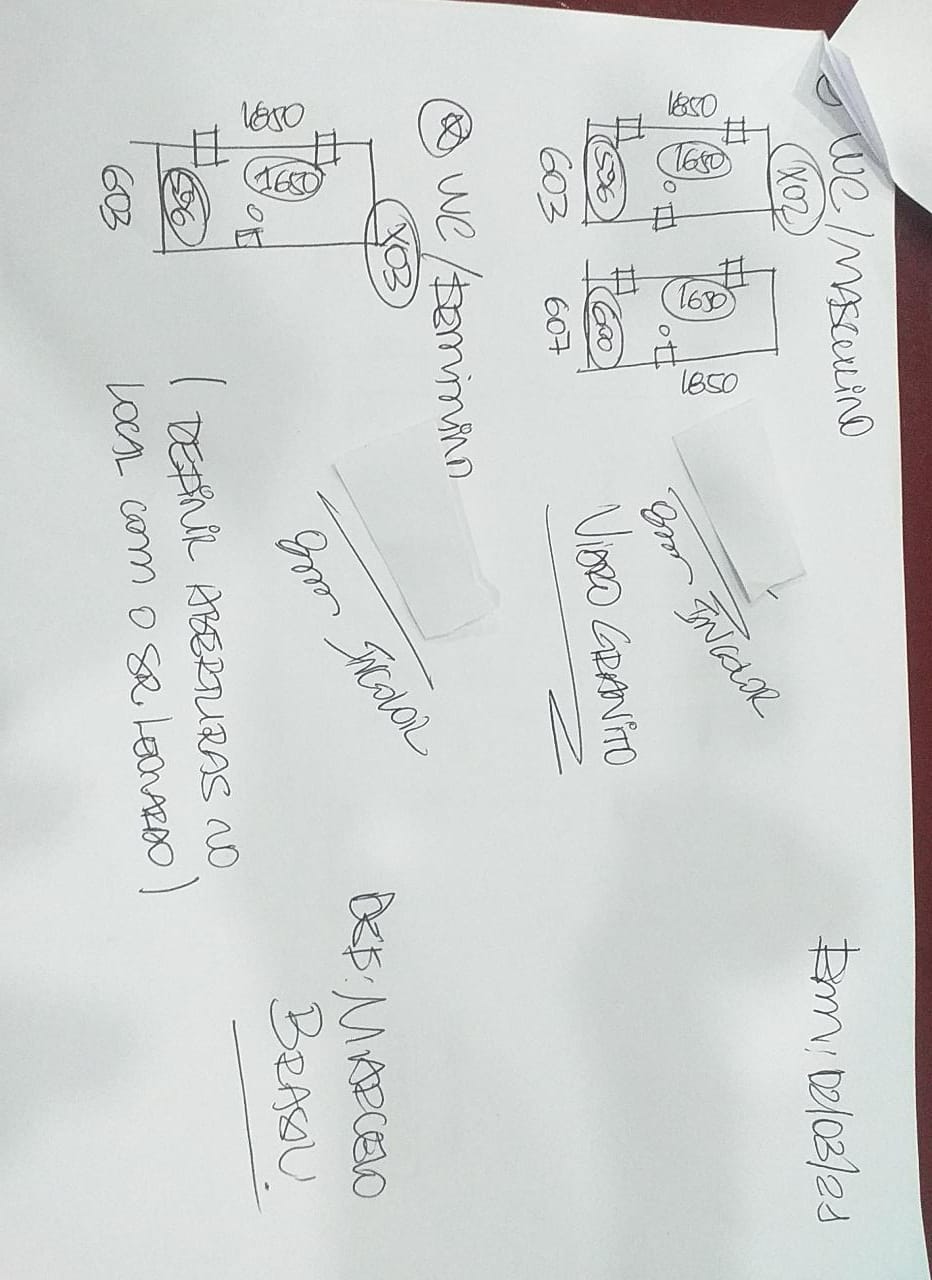 WC/MASCULINO
Em: 02/03/21
1850
1650
X02
596
603
1650
600
607
1850
8mm INCOLOR
VIDRO GRANITO
WC/FEMININO
1850
1650
X03
596
603
8mm INCOLOR
(DEFINIR ABERTURAS NO
LOCAL COM O SR. LEONARDO)
REF: MARCELO
BRASIL